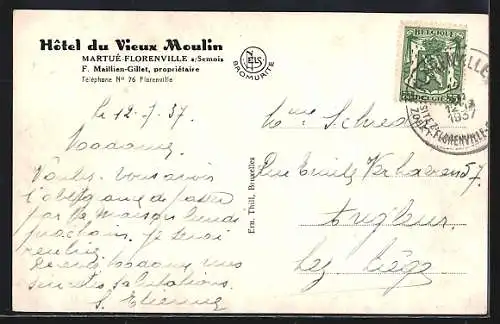 Hôtel du Vieux Moulin
MARTUÉ-FLORENVILLE s/Semois
F. Maillien-Gillet, propriétaire
Téléphone No 76 Florenville
BROMURITE
Ern. Thill, Bruxelles
BELGIQUE
BELGIE
12
1937
FLORENVILLE
Le 12-7-37.
Madame
Voulez-vous avoir
l'obligeance de passer
par la maison lundi
prochain. Je serai
rentrée.
Recevez Madame mes
sincères salutations.
S. Etienne
Mme
Rue Emile Verhaeren 57.
Angleur
Lez Liège